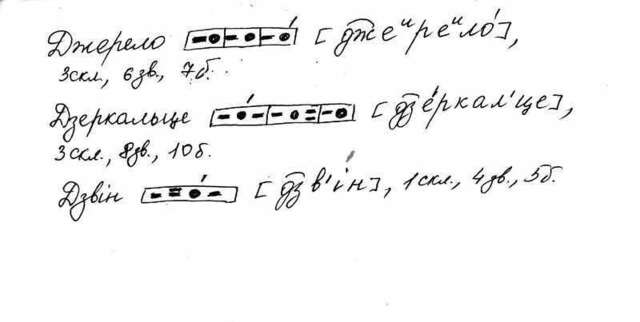 Джерело [–о|–о|–о́] [д͡жеᵘреᵘло́],
3скл., 6зв., 7б.
Дзеркальце [–о́–|–о=|–о] [д͡зе́ркал'це],
3скл., 8зв., 10б.
Дзвін [–=о́–] [д͡зв'ін], 1скл., 4зв., 5б.